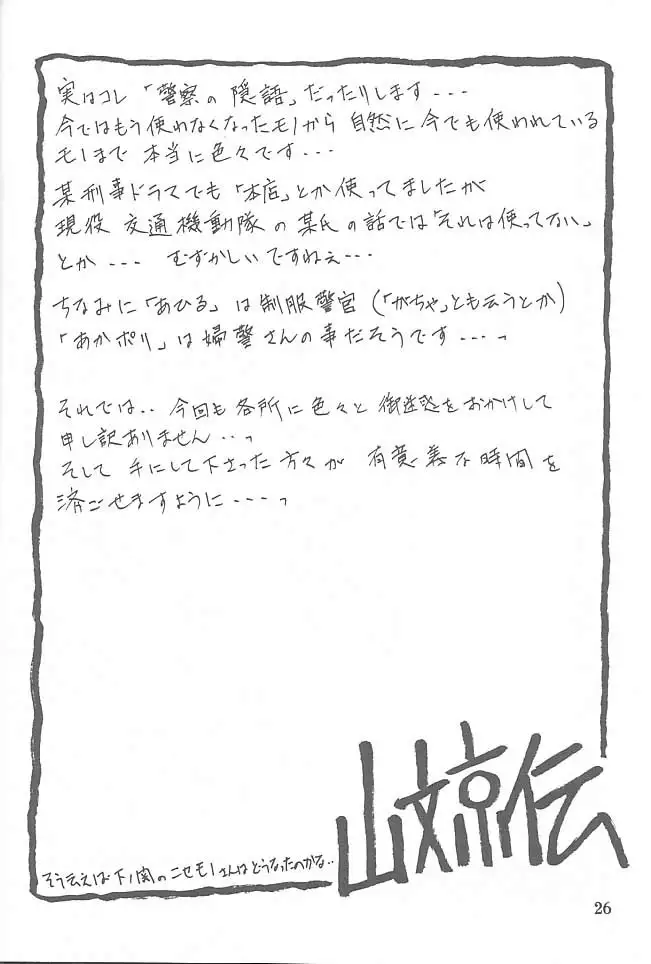 実はコレ「警察の隠語」だったりします・・・
今ではもう使われなくなったモノから 自然に今でも使われている
モノまで 本当に色々です・・・
某刑事ドラマでも「本店」とか使ってましたが
現役 交通機動隊の某氏の話では「それは使ってない」
とか・・・ むずかしいですねぇ・・・
ちなみに「あひる」は制服警官(「がちゃ」とも云うとか)
「あかポリ」は婦警さんの事だそうです・・・っ
それでは・・今回も各所に色々と御迷惑をおかけして
申し訳ありません・・っ
そして 手にして下さった方々が 有意義な時間を
済ごせますように・・・っ
山文京伝
そう云えば下ノ関のニセモノさんはどうなったのかな・・
26